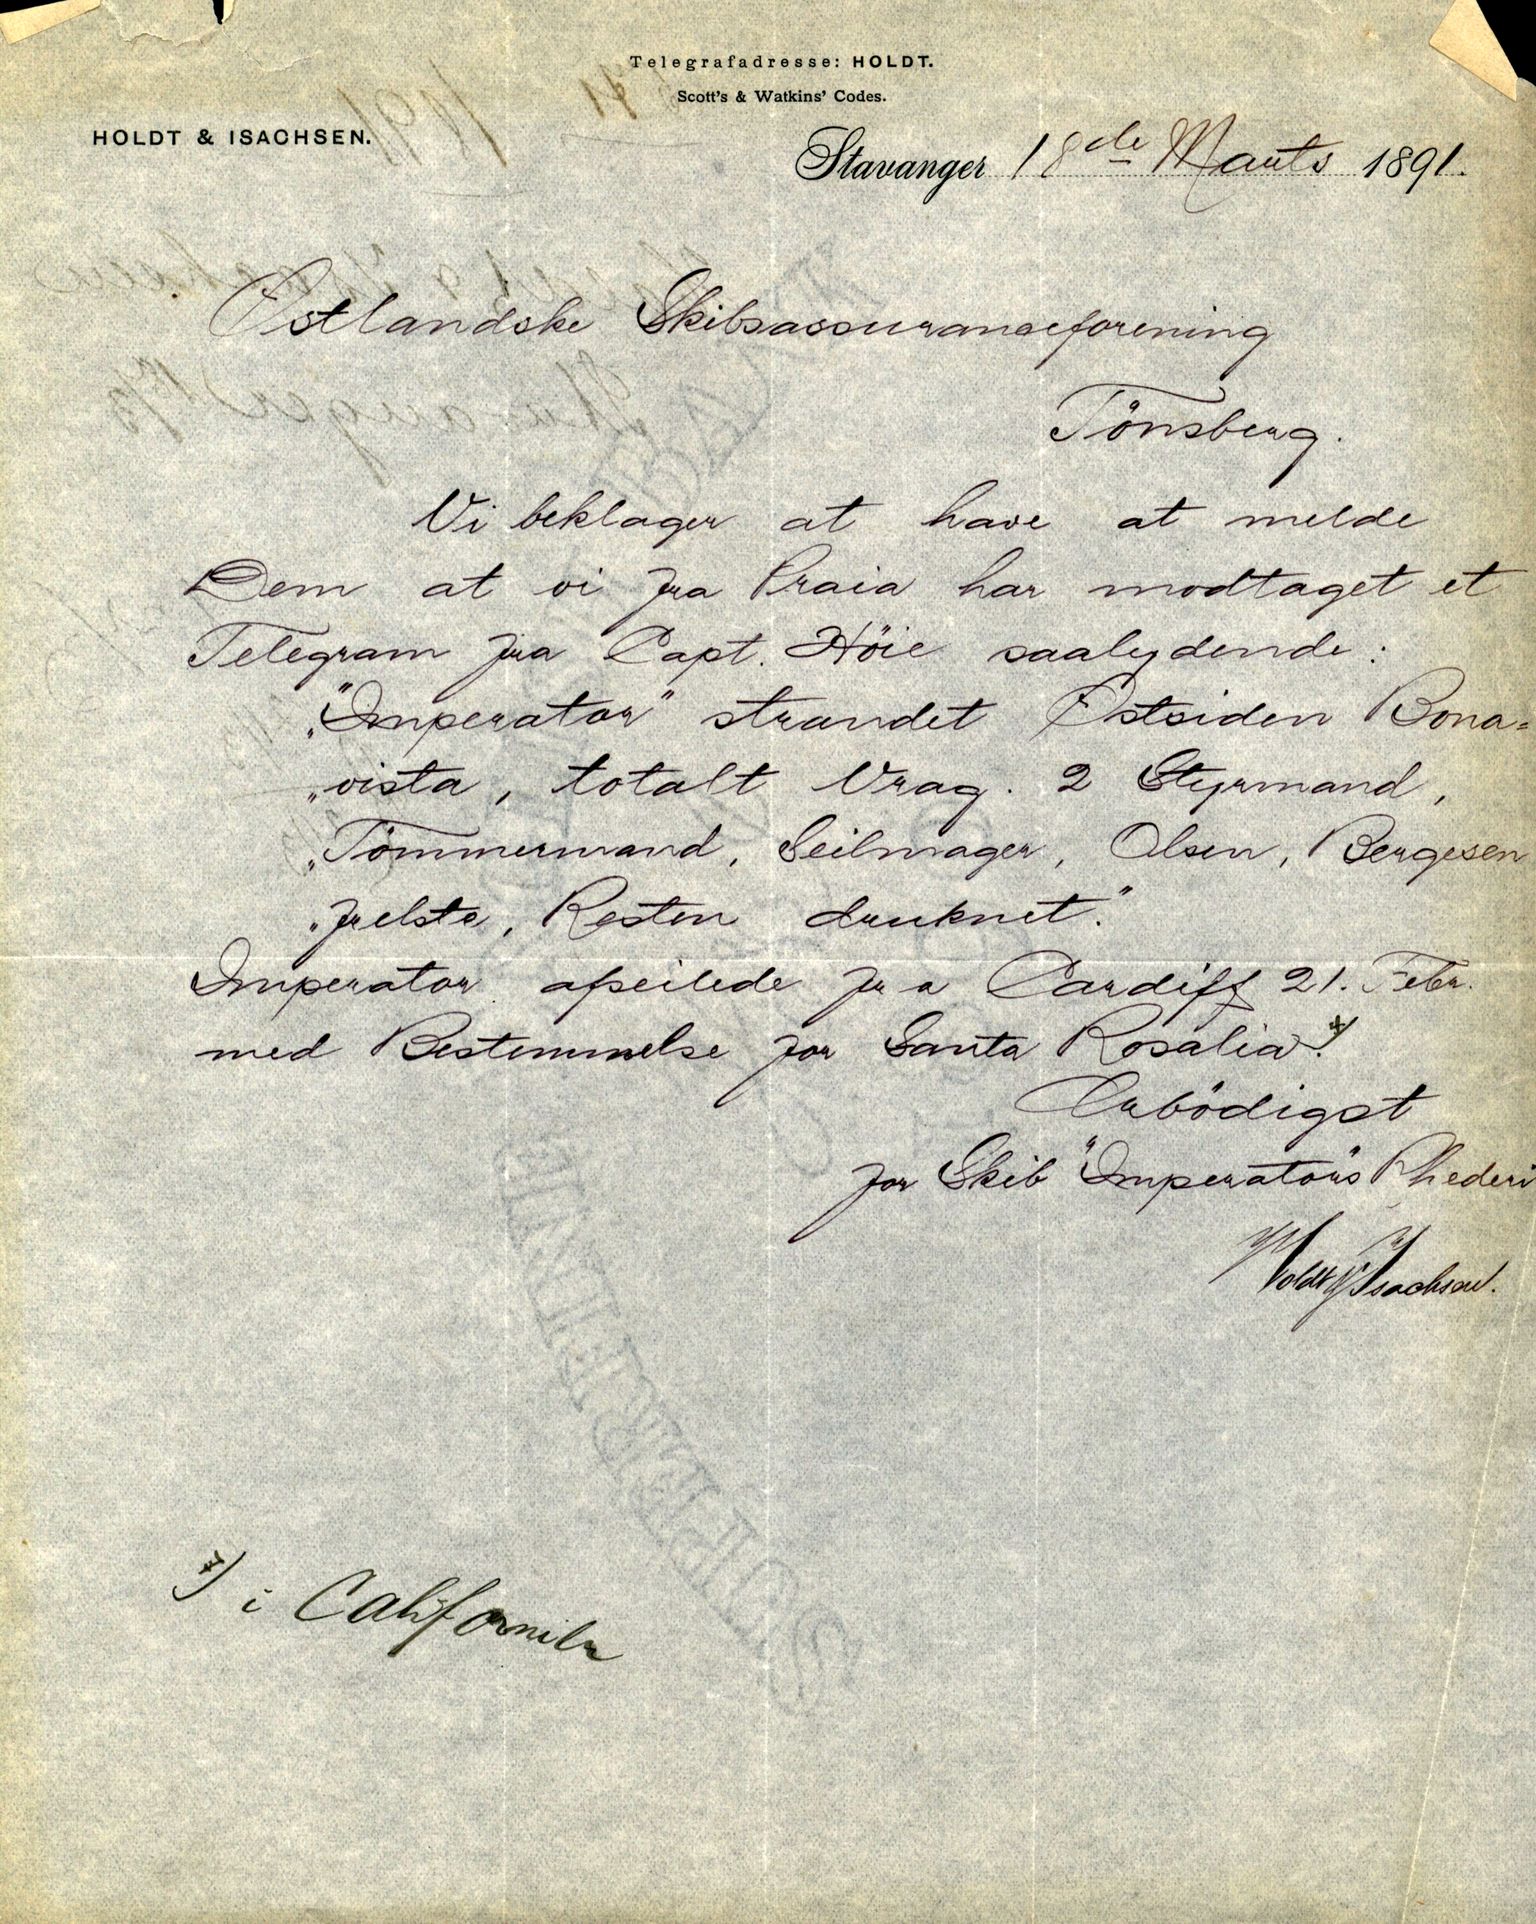 Telegrafadresse: HOLDT.
Scott's & Watkins' Codes.
HOLDT & ISACHSEN.
Stavanger 18de Marts 1891.
Östlandske Skibsassuranceforening
Tönsberg.
Vi beklager at have at melde
Dem at vi fra Praia har modtaget et
Telegram fra Capt. Höie saalydende:
„"Imperator" strandet Östsiden Bona=
„vista, totalt Vrag. 2 Styrmand,
„Tömmermand, Seilmager, Olsen, Bergesen
„frelste, Resten druknet."
Imperator afseilede fra Cardiff 21. Febr.
med Bestemmelse for Santa Rosalia. x)
Ærbödigst
for Skib "Imperator"s Rhederi
Holdt & Isachsen.
x) i Californien